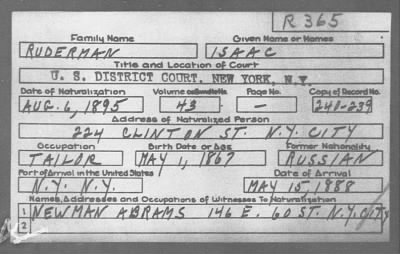 R 365
Family Name Given Name or Names
RUDERMAN ISAAC
Title and Location of Court
U. S. DISTRICT COURT, NEW YORK, N.Y.
Date of Naturalization Volume or Bundle No. Page No. Copy of Record No.
AUG. 6, 1895 43 — 240-239
Address of Naturalized Person
224 CLINTON ST. N.Y. CITY
Occupation Birth Date or Age Former Nationality
TAILOR MAY 1, 1867 RUSSIAN
Port of Arrival in the United States Date of Arrival
N.Y. N.Y. MAY 15, 1888
Names, Addresses and Occupations of Witnesses To Naturalization
1 NEWMAN ABRAMS 146 E. 60 ST. N.Y. CITY
2